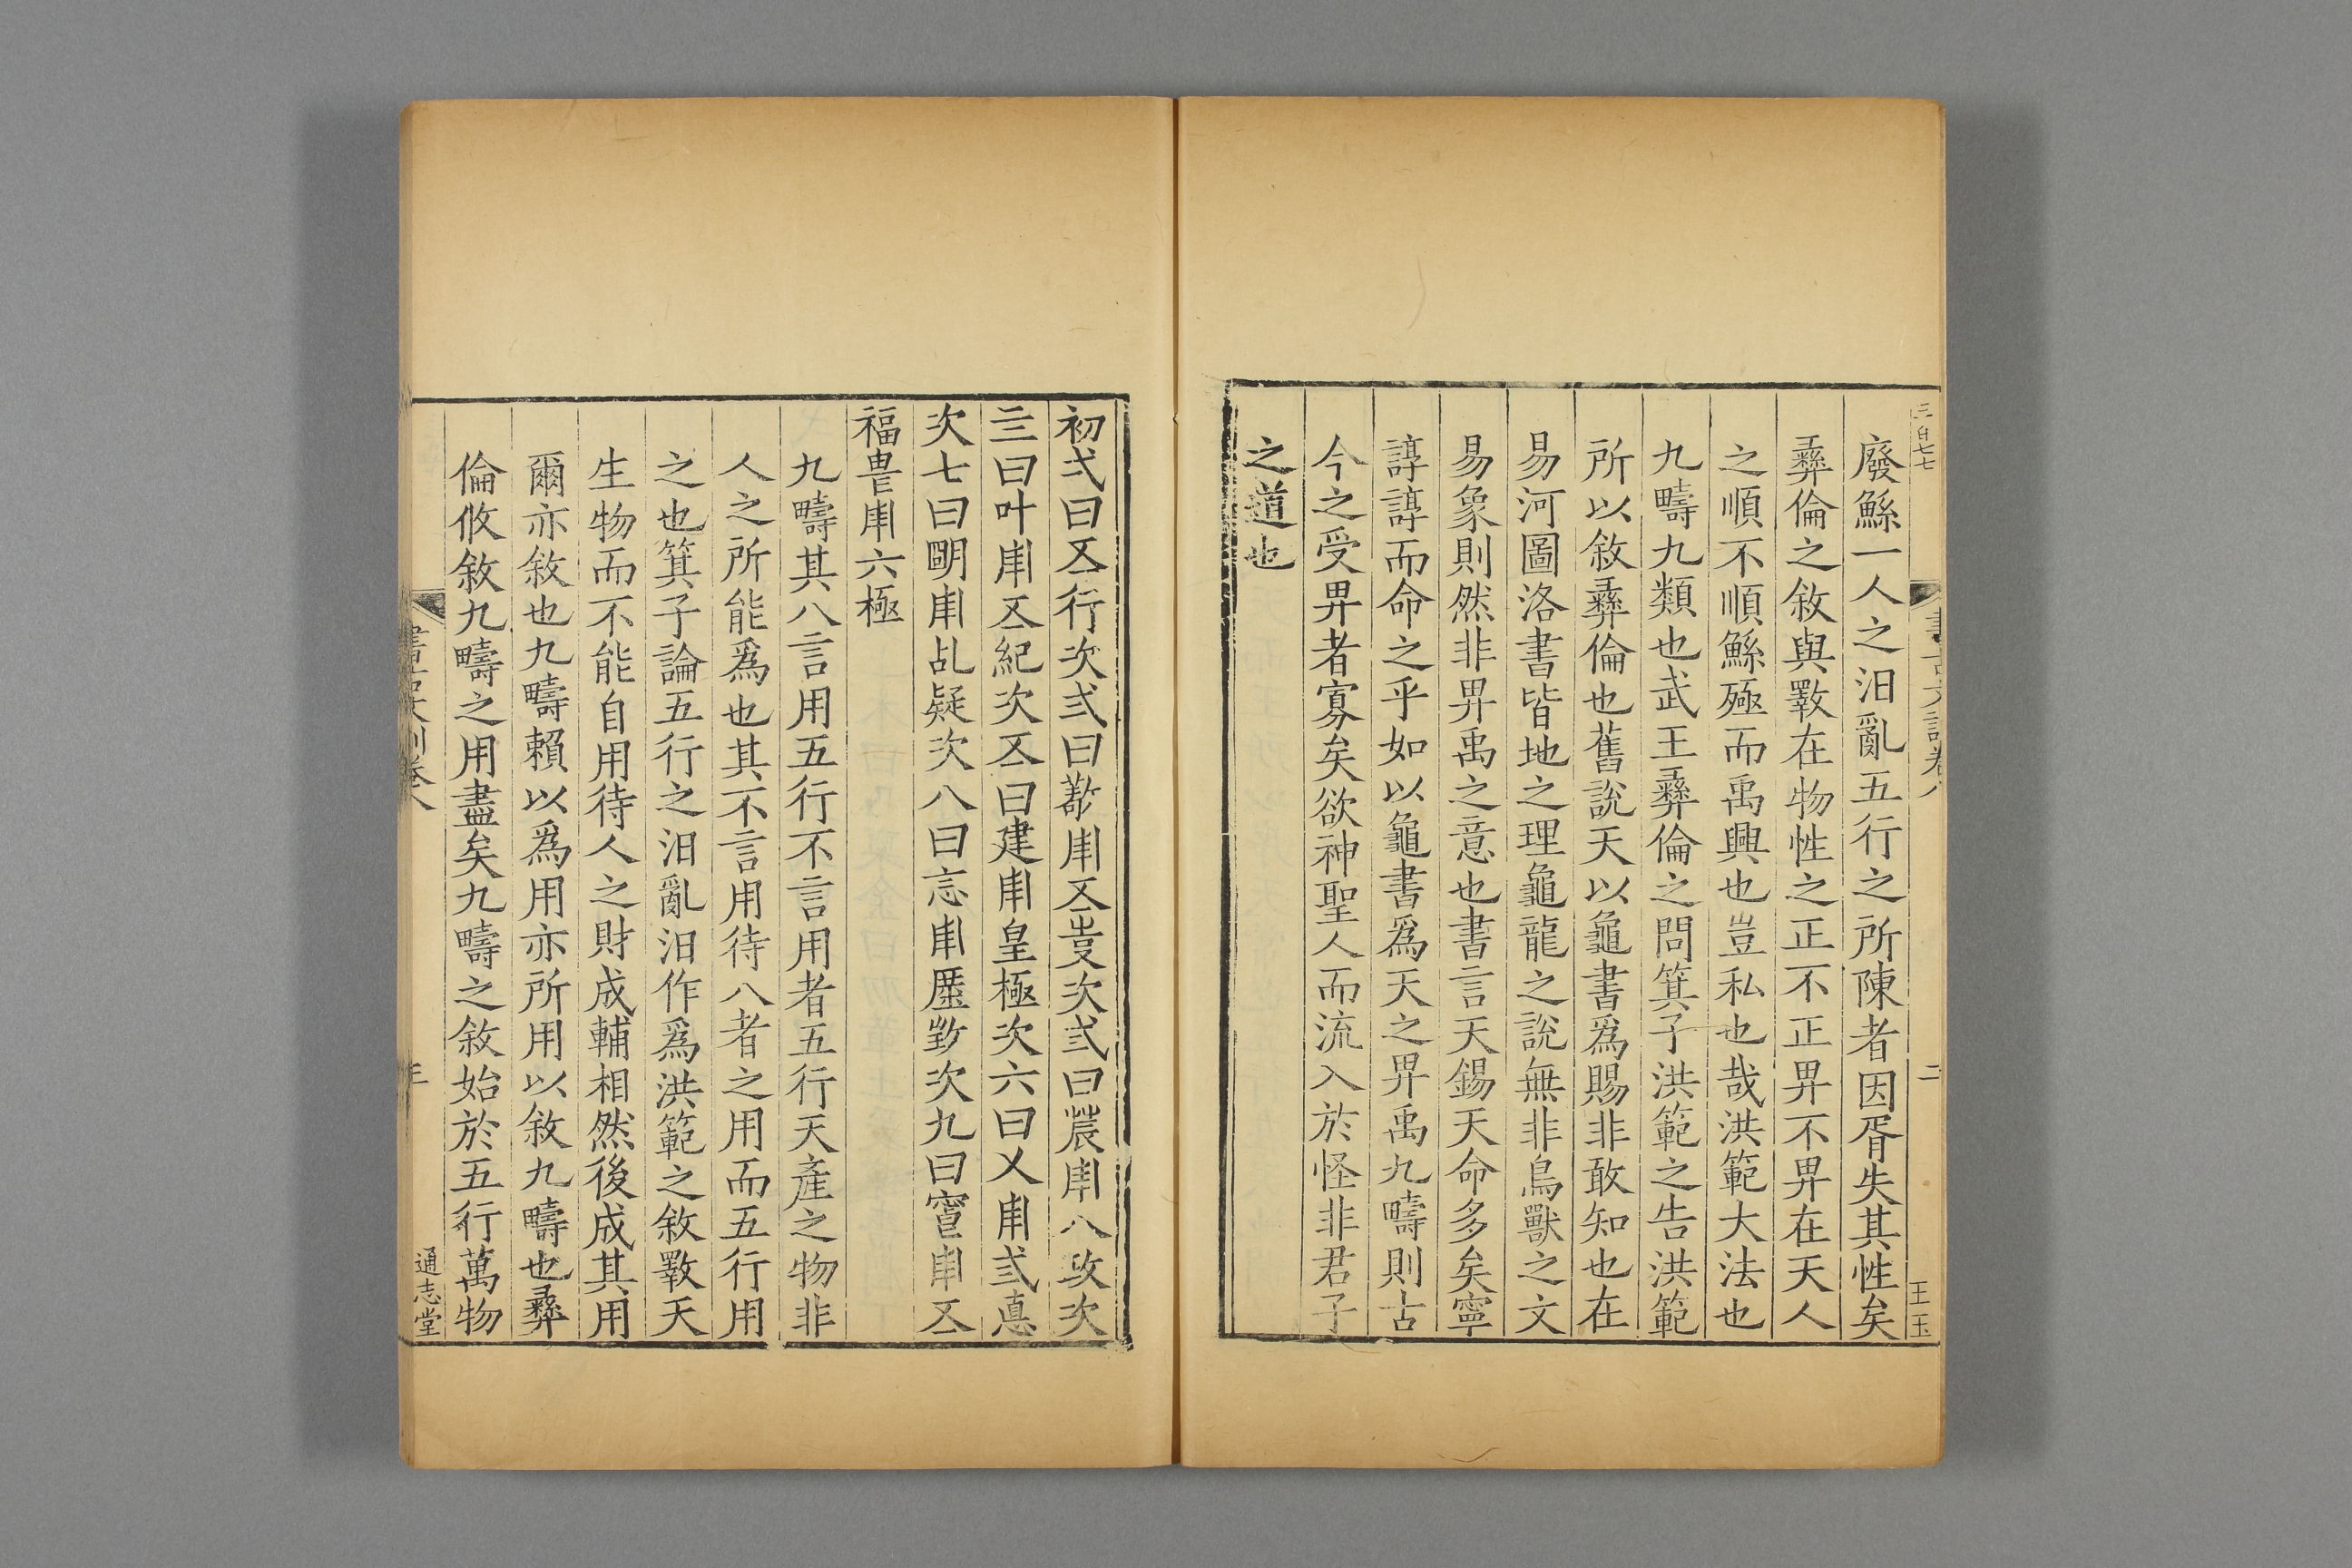 三百七七
二
王玉
廢鯀一人之汨亂五行之所陳者因胥失其性矣
彝倫之敘與斁在物性之正不正畀不畀在天人
之順不順鯀殛而禹興也豈私也哉洪範大法也
九疇九類也武王彝倫之問箕子洪範之告洪範
所以敘彝倫也舊說天以龜書爲賜非敢知也在
易河圖洛書皆地之理龜龍之說無非鳥獸之文
易象則然非畀禹之意也書言天錫天命多矣寧
諄諄而命之乎如以龜書爲天之畀禹九疇則古
今之受畀者寡矣欲神聖人而流入於怪非君子
之道也
初弌曰𠄡行次弍曰𠄡次弎曰農八次
三曰叶𠄡紀次𠄡曰建皇極次六曰乂弎悳
次七曰明乩疑次八曰次九曰𠄡
福六極
九疇其八言用五行不言用者五行天產之物非
人之所能爲也其不言用待八者之用而五行用
之也箕子論五行之汨亂汨作爲洪範之敘斁天
生物而不能自用待人之財成輔相然後成其用
爾亦敘也九疇賴以爲用亦所用以敘九疇也彝
倫攸敘九疇之用盡矣九疇之敘始於五行萬物
通志堂